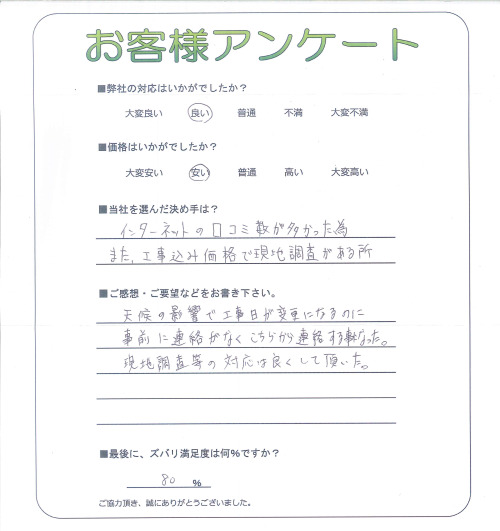 お客様アンケート
■弊社の対応はいかがでしたか？
大変良い 良い 普通 不満 大変不満
■価格はいかがでしたか？
大変安い 安い 普通 高い 大変高い
■当社を選んだ決め手は？
インターネットの口コミ数が多かった為
また、工事込み価格で現地調査がある所
■ご感想・ご要望などをお書き下さい。
天候の影響で工事日が変更になるのに
事前に連絡がなくこちらから連絡する事になった。
現地調査等の対応は良くして頂いた。
■最後に、ズバリ満足度は何%ですか？
80 %
ご協力頂き、誠にありがとうございました。